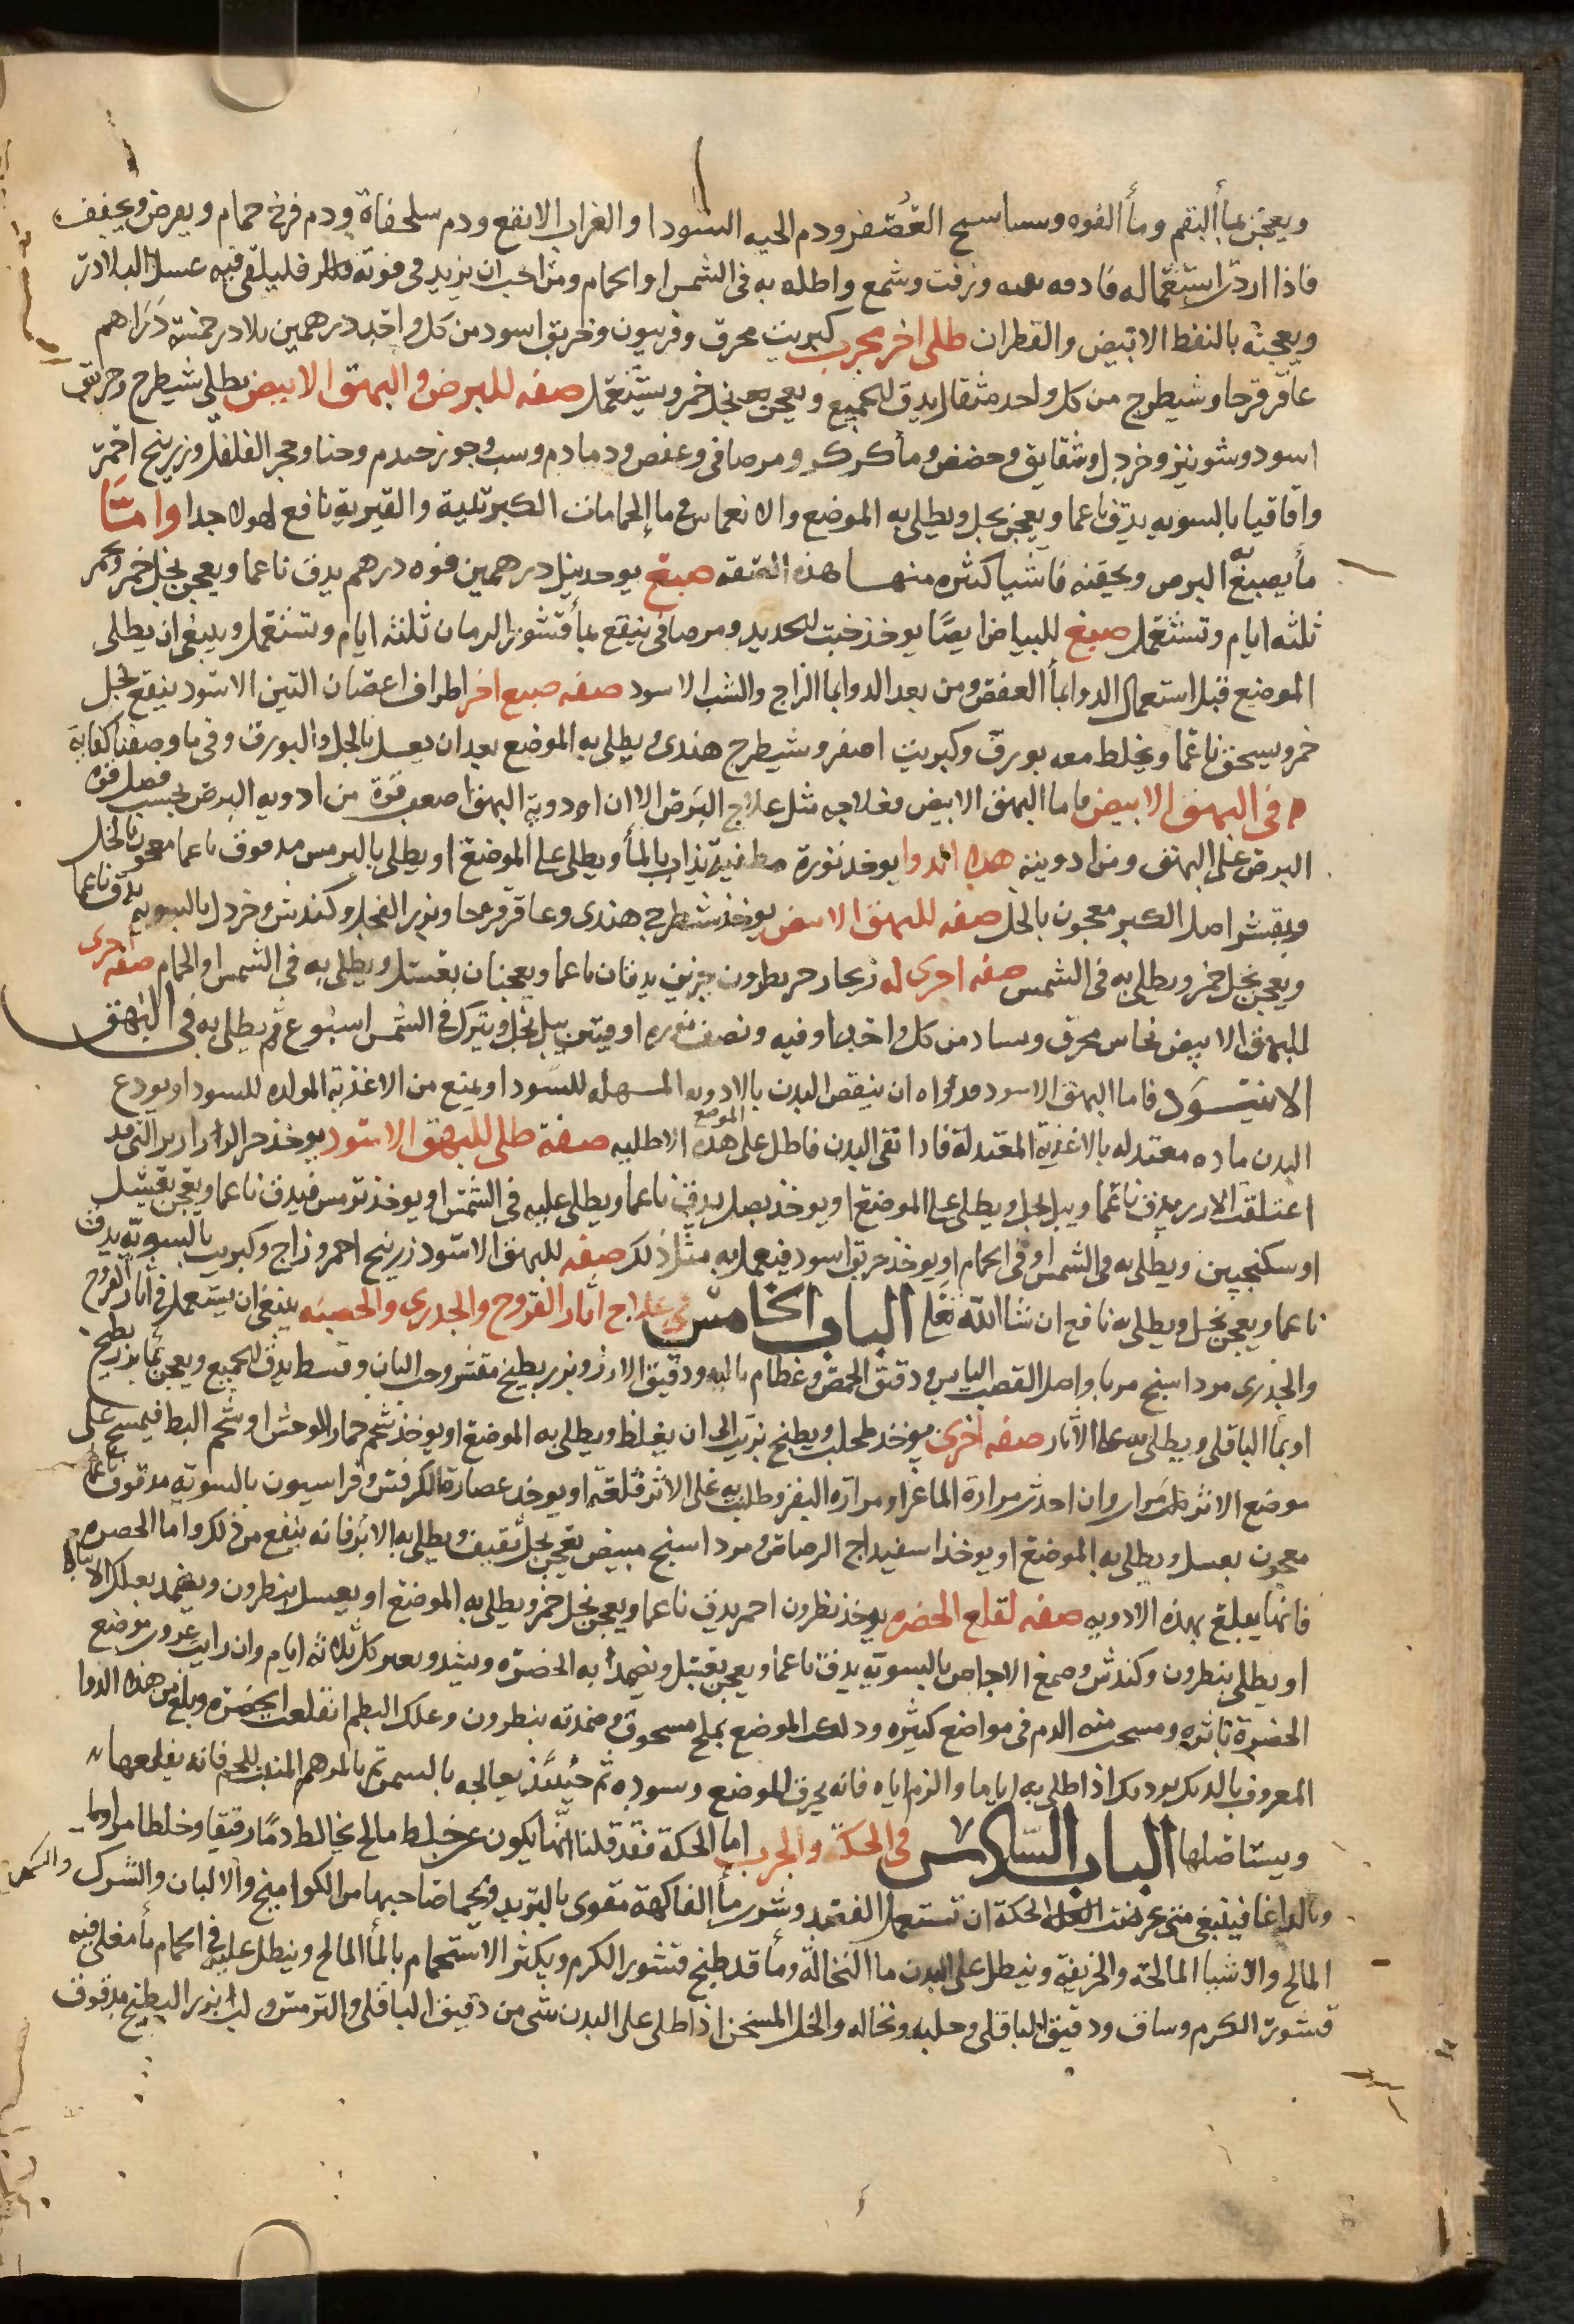 ويعجن بماء البقم وماء الفوه العصفر ودم الحيه السودا والغراب الابقع ودم سلحفاة ودم فرخ حمام ويقرص ويجفف
فاذا اردت استعماله وزفت وشمع واطله به فى الشمس او الحمام ومن احب ان يزيد فى قوته فليلقى فيه عسل البلادر
ويعجنه بالنفط الابيض والقطران طلى اخر مجرب كبريت محرق وفربيون وخربق اسود من كل واحد درهمين بلادر خمسة دراهم
عاقرقرحا وشيطرج من كل واحد مثقال يدق الجميع ويعجن بخل خمر ويستعمل صفه للبرص والبهق الابيض يطلى شيطرج وخربق
اسود وشونيز وخردل وشقايق وحضض ومر صافى وعفص وحنا وزرنيخ احمر
واقاقيا بالسويه يدق ناعما ويعجن بخل ويطلى به الموضع والانغماس فى ما الحمامات الكبريتية والقيرية نافع لهولا جدا واما
ما يصبغ البرص فاشيا كثيره منها هذه الصفه صبغ يوخد نيل درهمين فوه درهم يدق ناعما ويعجن بخل خمر ويخمر
ثلثه ايام وتستعمل صبغ للبياض ايضا يوخذ خبث الحديد ومر صافى ينقع بماء قشور الرمان ثلثه ايام وتستعمل وينبغى ان يطلى
الموضع قبل استعمال الدوا بماء العفص ومن بعد الدوا بماء الزاج والشب الاسود صفه صبغ اخر اطراف اغصان التين الاسود ينقع بخل
خمر ويسحق ناعما ويخلط معه بورق وكبريت اصفر وشيطرج هندى ويطلى به الموضع بعد ان يغسل بالخل والبورق وفى ما وصفنا كفاية
فى البهق الابيض فاما البهق الابيض فعلاجه مثل علاج البرص الا ان ادوية البهق اضعف قوة من ادويه البرص بحسب فضل قوه
البرص على البهق ومن ادويته هذا الدوا يوخذ نورة مطفية تذاب بالماء ويطلى على الموضع او يطلى بالترمس مدقوق ناعما معجون بالخل
وبقشر اصل الكبر معجون بالخل صفه للبهق الابيض يوخذ شيطرج هندى وعاقرقرحا وبزر الفجل وكندش وخردل بالسويه يدق ناعما
ويعجن بخل خمر ويطلى به فى الشمس صفه اخرى له زنجار جزو نطرون جزين يدقان ناعما ويعجنان بعسل ويطلى به فى الشمس او الحمام صفه اخرى
للبهق الابيض نحاس محرق من كل واحد اوقيه ونصف نوره اوقيتين يبل بخل ويترك فى الشمس اسبوع ثم يطلى به فى البهق
الاسود فاما البهق الاسود فدواه ان ينقص البدن بالادويه المسهله للسودا ويمنع من الاغذية المولده للسودا ويودع
البدن ماده معتدله بالاغذية المعتدلة فاذا نقى البدن فاطل على هذه الموضع الاطليه صفة طلى للبهق الاسود يوخذ خرو الزرازير التى قد
اعتلفت الارز يدق ناعما ويبل بخل ويطلى على الموضع او يوخذ بصل يدق ناعما ويطلى عليه فى الشمس او يوخذ ترمس فيدق ناعما ويعجن بعسل
او سكنجبين ويطلى به فى الشمس او فى الحمام او يوخذ خربق اسود فيعمل به مثل ذلك صفه للبهق الاسود زرنيخ احمر وزاج وكبريت بالسويه يدق
ناعما ويعجن بخل ويطلى به نافع ان شا الله تعلى الباب الخامس فى علاج اثار القروح والجدرى والحصبه ينبغى ان يستعمل فى اثار القروح
والجدرى مرداسنج مربا واصل القصب اليابس ودقيق الحمص وعظام باليه ودقيق الارز وبزر بطيخ مقشر وحب البان وقسط يدق الجميع ويعجن بماء بزر بطيخ
او بماء الباقلى ويطلى به على الاثار صفه اخرى يوخذ طحلب ويطبخ بزيت الى ان يغلظ ويطلى به الموضع او يوخذ شحم حمار الوحش او شحم البط فيمسح على
موضع الاثر مرار وان احدث مرارة الماعز او مراره البقر وطليت به على الاثر قلعته او يوخذ عصارة الكرفس وفراسيون بالسويه مدقوق ناعما
معجون بعسل ويطلى به الموضع او يوخذ اسفيداج الرصاص ومرداسنج مبيض يعجن بخل ثقيف ويطلى به الاثر فانه ينفع من ذلك واما الخضره
فانها يعلاج بهذه الادويه صفه لقلع الخضره يوخذ نطرون احمر يدق ناعما ويعجن بخل خمر ويطلى به الموضع او يغسل بنطرون ويضمد بعلك الانباط
او يطلى بنطرون وكندش وصمغ الاجاص بالسويه يدق ناعما ويعجن بعسل ويضمد به الخضره ويشد كل ثلاثه ايام وان رايت موضع
الخضرة ومسحت منه الدم فى مواضع كثيره ودلكت الموضع بملح مسحوق وضمدته بنطرون وعلك البطم انقلعت الخضره هذه الدوا
المعروف بالديك برديك اذا طلى به اياما والزم اياه فانه يحرق الموضع ويسوده ثم حينيذ يعالجه بالسمن ثم بالمرهم المنبت للحم فانه يقلعها
ويستاصلها الباب السادس فى الحكة والجرب اما الحكة فقد قلنا انها يكون عن خلط مالح يخالط دما رقيقا وخلطا مراريا
فينبغى متى عرضت الحكة ان تستعمل الفصد وشرب ماء الفاكهة مقوى بالتربد ويحما صاحبها من الكواميخ والالبان والسمك
المالح والاشيا المالحة والحريفه وينطل على البدن ما النخالة وماء قد طبخ قشور الكرم ويكثر الاستحمام بالماء المالح وينطل عليه فى الحمام ماء مغلى فيه
قشور الكرم وساق ودقيق الباقلى وحلبه ونخاله والخل المسخن اذا طلى على البدن شى من دقيق الباقلى والترمس ولب بزر البطيخ مدقوق